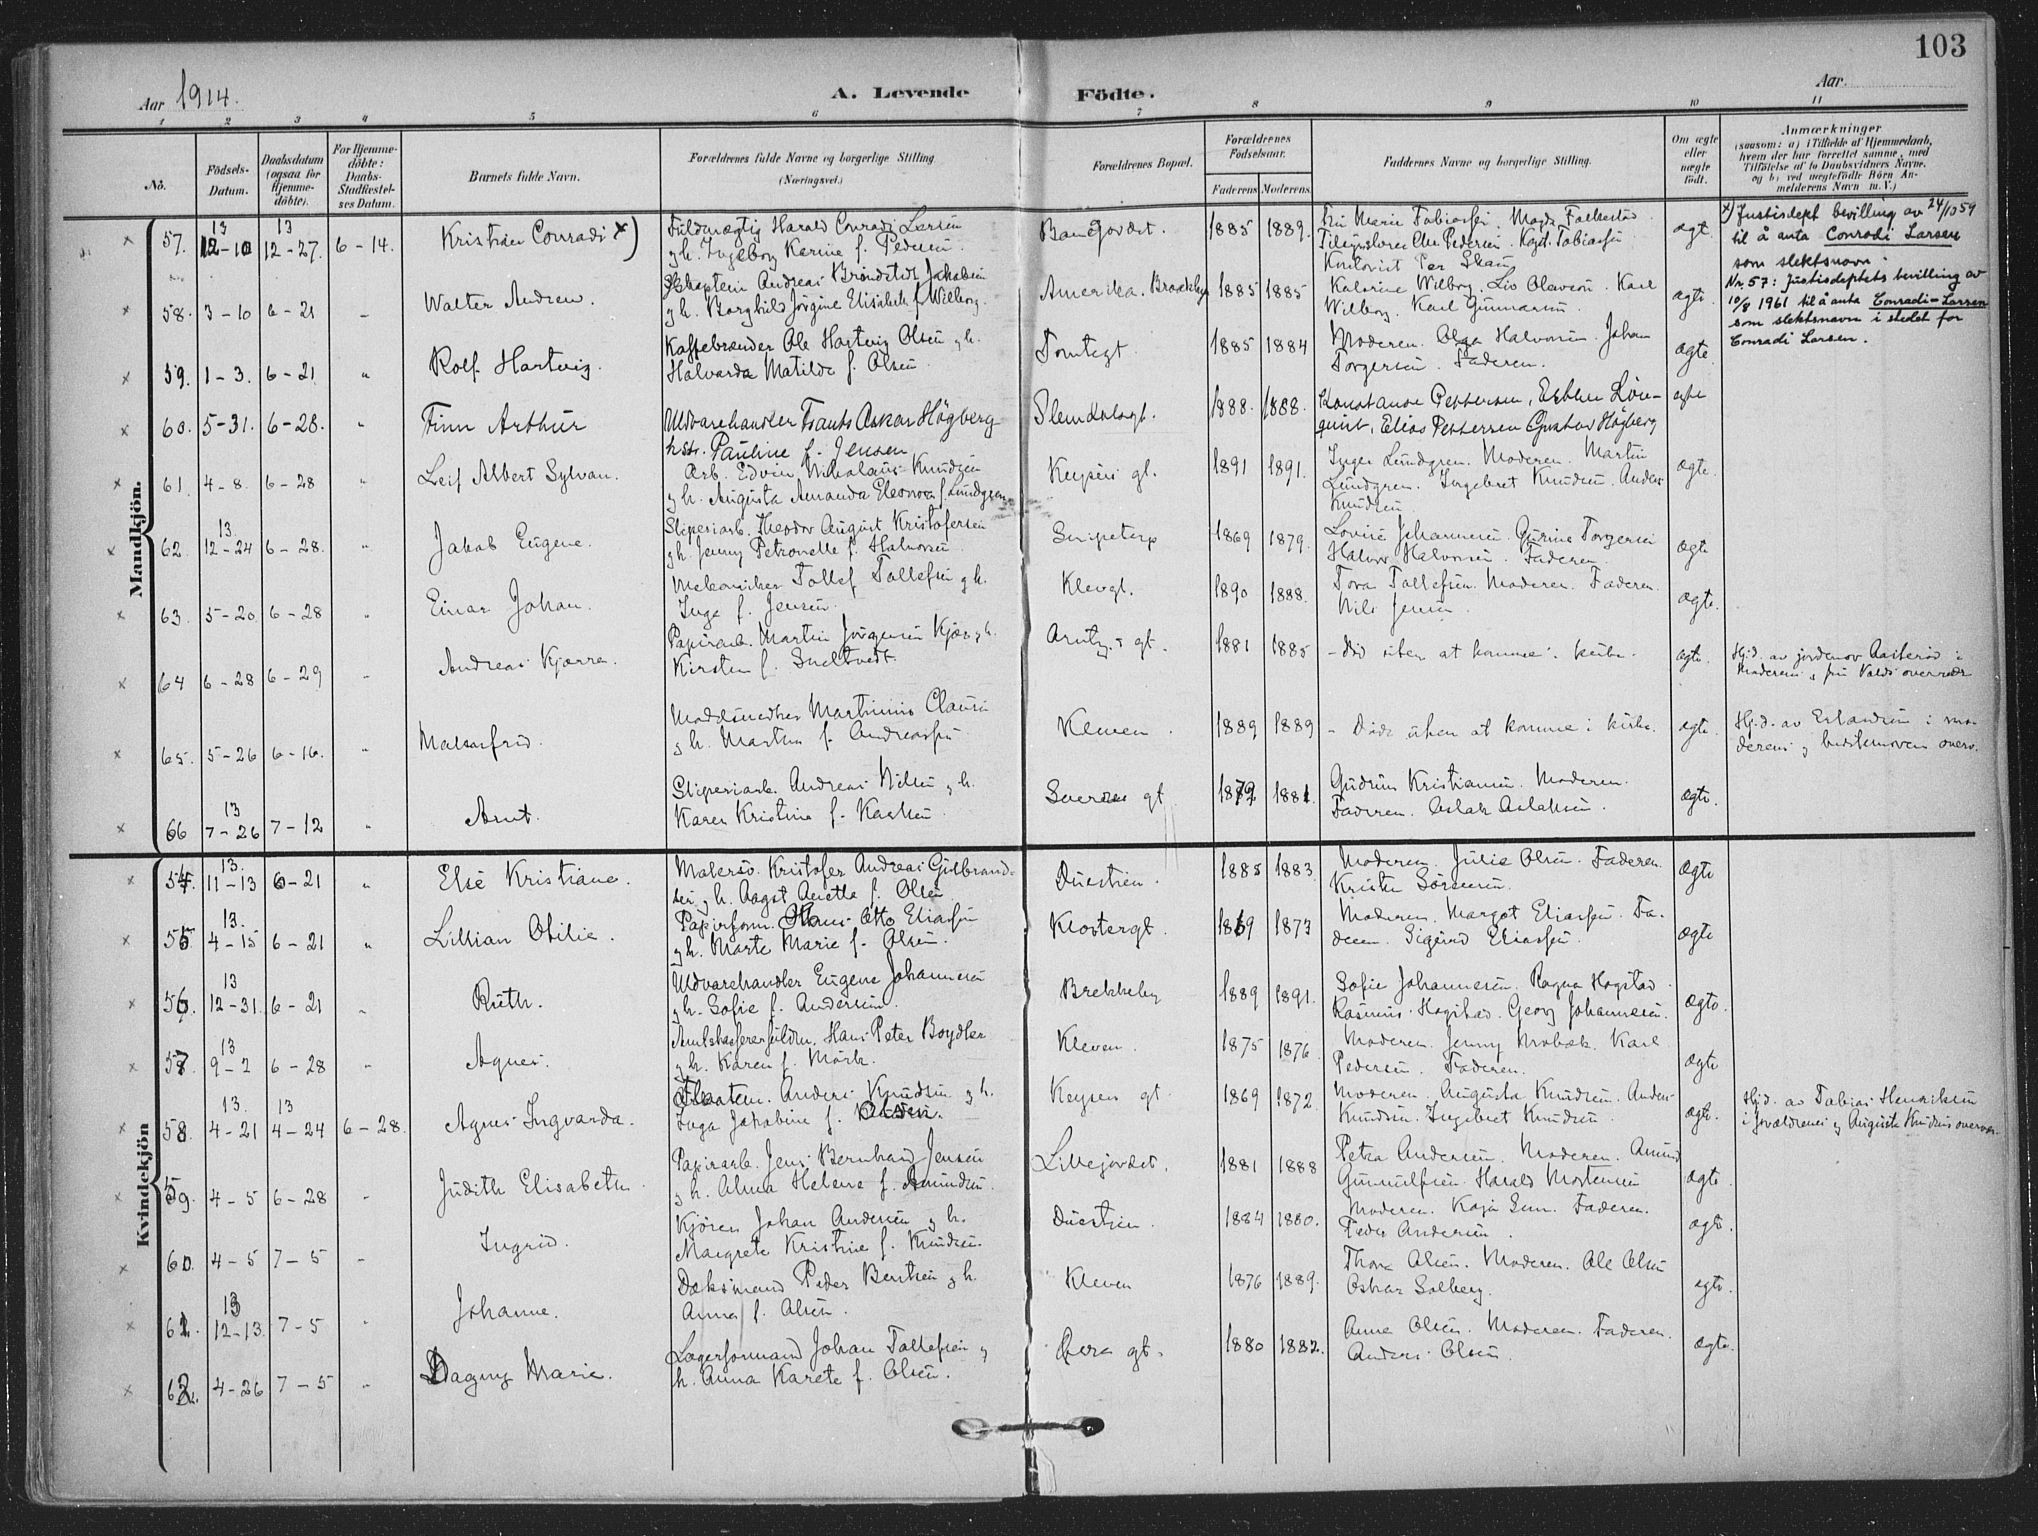 103
Aar 1914.
A. Levende Födte.
Aar
1 2 3 4 5 6 7 8 9 10 11
No.
Födsels-Datum.
Daabsdatum (ogsaa for Hjemme-döbte).
For Hjemme-döbte: Daabs-Stadfæstel-ses Datum.
Barnets fulde Navn.
Forældrenes fulde Navne og borgerlige Stilling (Næringsvei.)
Forældrenes Bopæl.
Forældrenes Födselsaar.
Faderens Moderens
Faddernes Navne og borgerlige Stilling.
Om ægte eller uægte födt.
Anmærkninger
(saasom: a) i Tilfælde af Hjemmedaab,
hvem der har forrettet samme, med
Tilföielse af to Daabsvidners Navne,
og b) ved uægtefödte Börn An-
melderens Navn m. V.)
Mandkjön.
57. 13 12-10 13 12-27. 6-14. Kristian Conradi x)
Fuldmægtig Harald Conradi Larsen
g h. Ingeborg Karine f. Pedersen.
1885 1889.
Fru Marie Tobiassen
ægt.
x) Justisdept bevilling av 24/10 59
til å anta Conradi Larsen
som slektsnavn.
Nr. 57: Justisdeptets bevilling av
10/8 1961 til å anta Conradi-Larsen
som slektsnavn i stedet for
Conradi Larsen.
58. 3-10 6-21 " Walter Andrew.
Andreas Jakobsen
g h. Borghild Jörgine Elisabeth f. Wilborg.
Amerika. Brekkeby 1885 1885
Katarine Wilborg. Liv Olavesen. Karl
Wilborg. Karl Gunnarsen.
ægte
59. 1-3. 6-21. " Rolf Hartvig.
Kaffebrænder Ole Hartvig Olsen g h.
Halvarda Matilde f. Olsen.
Tomtegt 1885 1884
Moderen. Olga Halvorsen. Johan
Torgersen. Faderen.
ægte
60. 5-31. 6-28. " Finn Arthur
Uldvarehandler Frants Oskar Högberg
h str. Pauline f. Jensen
1888. 1888.
Konstance Pettersen, Esther Lön-
quist, Elias Pettersen Gustav Högberg
ægte
61. 4-8. 6-28 " Leif Albert Sylvan.
Arb. Edvin Nikolaus Knudsen
g h. Augusta Amanda Eleonora f. Lundgren
Keysers gt. 1891 1891.
Inger Lundgren. Moderen. Martin
Lundgren. Ingebret Knudsen. Anders
Knudsen.
ægte.
62. 13. 12-24 6-28. " Jakob Eugene.
Sliperiarb. Theodor August Kristofersen
g h. Jenny Petronelle f. Halvorsen.
Snipetorp 1869 1879.
Lovise Johannesen. Gurine Torgersen
Halvor Halvorsen. Faderen.
ægte
63. 5-20. 6-28 " Einar Johan.
Mekaniker Tollef Tollefsen g h.
Inga f. Jensen.
Klevgt. 1890 1888.
Tora Tollefsen. Moderen. Faderen.
Nils Jensen.
ægte.
64 6-28 6-29 " Andreas Kjærra.
Papirarb. Martin Jörgensen Kjær g h.
Kirsten f. Smeltvedt.
1881 1885
- död uten at komme i kirke.
ægte.
Hj.d. av jordmor Aasterud i
Moderens g fru Valds overvær
65. 5-26 6-16. "
Martinius Clausen
g h. Marthe f. Andreassen.
Kleven. 1889 1889
- Döde uten at komme i kirke.
ægte.
Hj.d. av Erlandsen i mo-
derens g bestemoderens overv.
66 13 7-26 7-12 " Arnt.
Sliperiarb. Andreas Nilsen g h.
Karen Kristine f.
Sverres gt. 1872 1881
Gudrun Kristiansen. Moderen.
Faderen. Aslak Aslaksen.
ægte.
Kvindekjön
54. 13. 11-13 6-21 " Else Kristiane.
Malersv. Kristofer Andreas Gulbrand-
sen g h. Aagot Anette f. Olsen
Duestien. 1885 1883.
Moderen. Julie Olsen. Faderen.
Krister Sörensen.
ægte
55. 13. 4-15 6-21 " Lillian Otilie.
Papirform. Hans Otto Eliassen
g h. Marte Marie f. Olsen.
Klostergt. 1869 1873
Moderen. Margot Eliassen. Fa-
deren. Sigurd Eliassen.
ægte
56. 13 12-31. 6-21 " Ruth.
Uldvarehandler Eugene Johannesen
g h. Sofie f. Andersen.
Brekkeby 1889 1891.
Sofie Johannesen. Ragna Hogstad.
Rasmus Hogstad. Georg Johannesen.
ægte.
57. 13 9-2 6-28 " Agnes.
Amtskassererfuldm. Hans Peter Boydler
g h. Karen f. Mörk.
Kleven. 1875 1876
Moderen. Jenny Mobæk. Karl
Pedersen. Faderen.
ægte
58. 13. 4-21 13 4-24 6-28. Agnes Ingvarda.
Anders Knudsen g h.
Inga Jakobine f. Olsen.
Keysers gt. 1869 1872.
Moderen. Augusta Knudsen. Anders
Knudsen. Ingebret Knudsen.
ægte.
Hj.d. av Tobias Henriksen
i forældrenes g Augusta Knudsens overvær.
59. 4-5 6-28 " Judith Elisabeth
Papirarb. Jens Bernhard Jensen
g h. Alma Helene f. Amundsen.
Lillejordet. 1881 1888
Petra Andersen. Moderen. Amund
Gunnulfsen. Harald Mortensen
ægte
60. 4-5 7-5 " Ingrid.
Kjörer Johan Andersen g h.
Margrete Kristine f. Knudsen.
Duestien. 1884 1880.
Moderen. Kaja Faderen.
Peder Andersen.
ægte.
61. 13 12-13. 7-5 " Johanne.
Doksmand Peder Berntsen g h.
Anna f. Olsen.
Kleven 1876 1889.
Thora Olsen. Moderen. Ole Olsen
Oskar Solberg.
ægte.
62. 4-26 7-5 " Dagny Marie.
Lagerformand Johan Tollefsen g
h. Anna Karete f. Olsen.
gt. 1880 1882.
Anne Olsen. Moderen. Faderen.
Anders Olsen.
ægte.